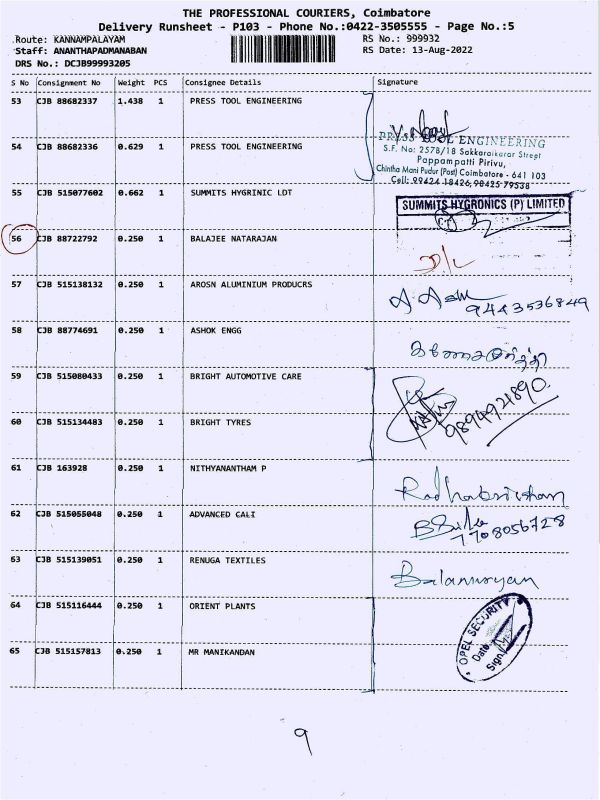 THE PROFESSIONAL COURIERS, Coimbatore
Delivery Runsheet - P103 - Phone No.:0422-3505555 - Page No.:5
Route: KANNAMPALAYAM
RS No.: 999932
Staff: ANANTHAPADMANABAN
RS Date: 13-Aug-2022
DRS No.: DCJB99993205
S No Consignment No Weight PCS Consignee Details Signature
53 CJB 88682337 1.438 1 PRESS TOOL ENGINEERING
54 CJB 88682336 0.629 1 PRESS TOOL ENGINEERING
PRESS TOOL ENGINEERING
S.F. No: 2578/18 Sokkaraikarar Street
Pappampatti Pirivu,
Chintha Mani Pudur (Post) Coimbatore - 641 103
Cell: 99424 18426, 90425 79538
55 CJB 515077602 0.662 1 SUMMITS HYGRINIC LDT
SUMMITS HYGRONICS (P) LIMITED
56 CJB 88722792 0.250 1 BALAJEE NATARAJAN
57 CJB 515138132 0.250 1 AROSN ALUMINIUM PRODUCRS
9443536849
58 CJB 88774691 0.250 1 ASHOK ENGG
59 CJB 515080433 0.250 1 BRIGHT AUTOMOTIVE CARE
60 CJB 515134483 0.250 1 BRIGHT TYRES
9894921890
61 CJB 163928 0.250 1 NITHYANANTHAM P
62 CJB 515055048 0.250 1 ADVANCED CALI
7708056728
63 CJB 515139051 0.250 1 RENUGA TEXTILES
64 CJB 515116444 0.250 1 ORIENT PLANTS
OPEL SECURITY
Date
Sign
65 CJB 515157813 0.250 1 MR MANIKANDAN
9